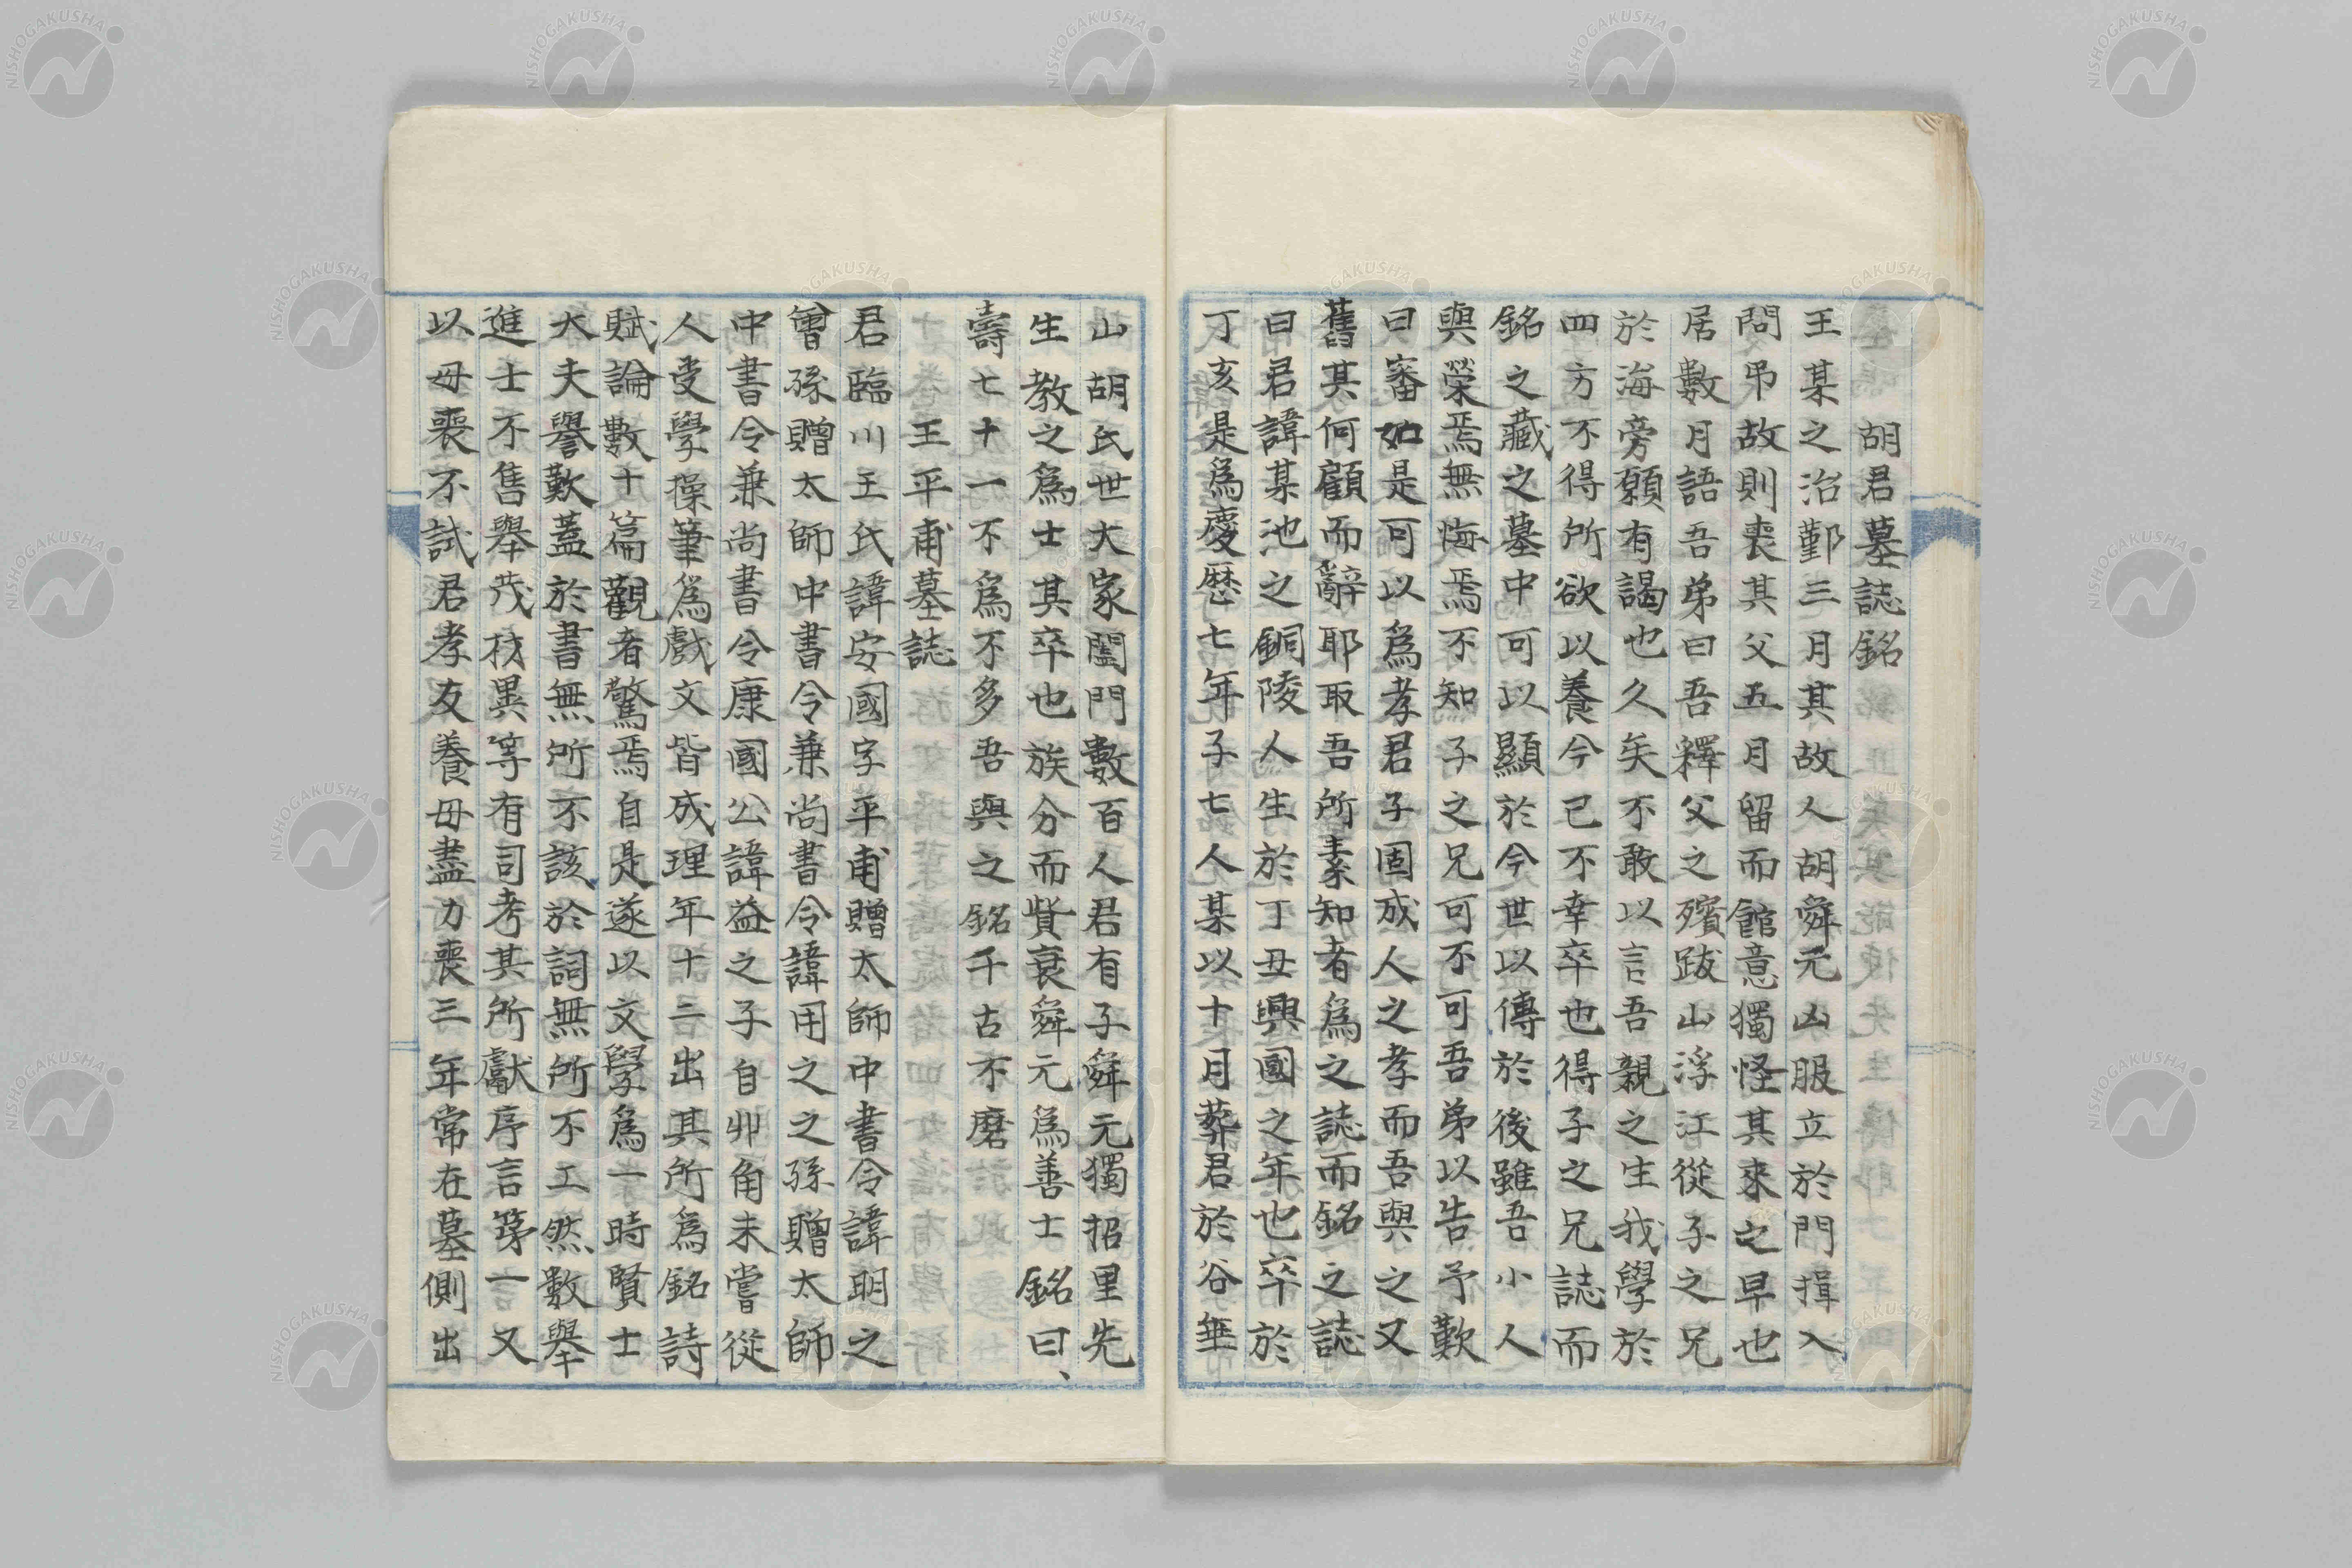 胡君墓誌銘
王某之治鄞三月其故人胡舜元凶服立於門揖入
問弔故則喪其父五月留而館意獨怪其來之早也
居數月語吾弟曰吾釋父之殯跋山浮江從子之兄
於海旁願有謁也久矣不敢以言吾親之生我學於
四方不得所欲以養今已不幸卒也得子之兄誌而
銘之藏之墓中可以顯於今世以傳於後雖吾小人
與榮焉無悔焉不知子之兄可不可吾弟以告予歎
曰審如是可以為孝君子固成人之孝而吾與之又
舊其何顧而辭耶取吾所素知者為之誌而銘之誌
曰君諱某池之銅陵人生於丁丑興國之年也卒於
丁亥是為慶歷七年子七人某以十月葬君於谷垂
山胡氏世大家闔門數百人君有子舜元獨招里先
生教之為士其卒也族分而貲衰舜元為善士銘曰、
壽七十一不為不多吾與之銘千古不磨
王平甫墓誌
君臨川王氏諱安國字平甫贈太師中書令諱明之
曾孫贈太師中書令兼尚書令諱用之之孫贈太師
中書令兼尚書令康國公諱益之子自丱角未嘗從
人受學操筆為戲文皆成理年十二出其所為銘詩
賦論數十篇觀者驚焉自是遂以文學為一時賢士
大夫譽歎蓋於書無所不該於詞無所不工然數舉
進士不售舉茂材異等有司考其所獻序言第一又
以母喪不試君孝友養母盡力喪三年常在墓側出